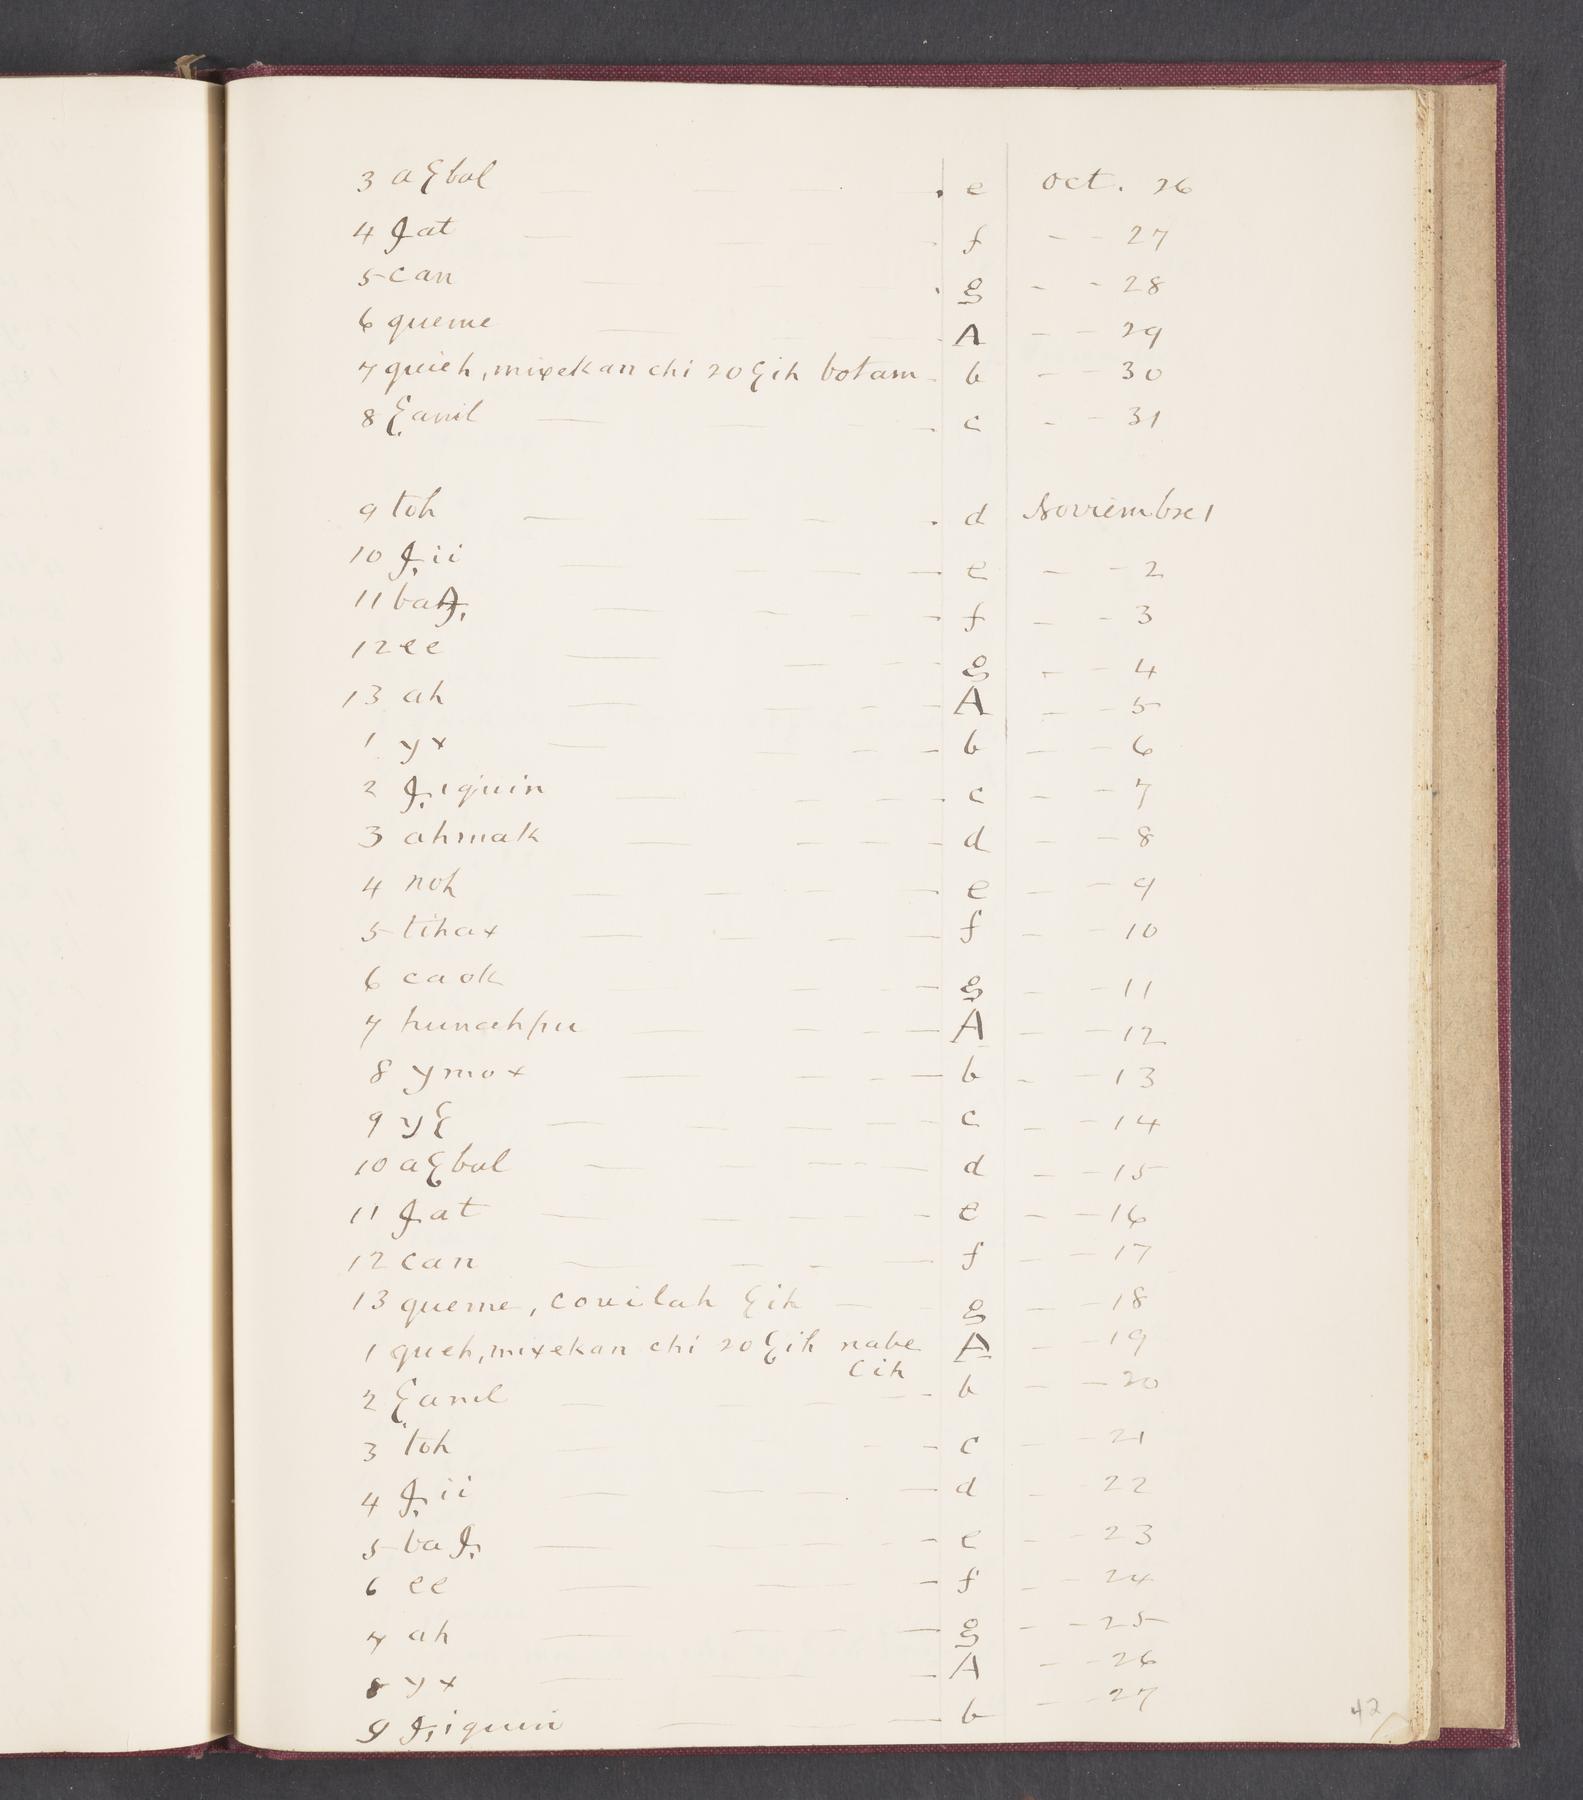 3 aꜪbal e oct. 26
4 Ꜭat f - - 27
5 can g - - 28
6 queme A - - 29
7 quieh, mixekan chi 20 Ꜫih botam b - - 30
8 Ꜫanil c - - 31
9 toh d Noviembre 1
10 Ꜯii e - - 2
11 baꜮ f - - 3
12 ee g - - 4
13 ah A - - 5
1 yx b - - 6
2 Ꜯiquin c - - 7
3 ahmak d - - 8
4 noh e - - 9
5 tihax f - - 10
6 caok g - - 11
7 hunahpu A - - 12
8 ymox b - - 13
9 yꜪ c - - 14
10 aꜪbal d - - 15
11 Ꜭat e - - 16
12 can f - - 17
13 queme, couilah Ꜫih g - - 18
1 queh, mixekan chi 20 Ꜫih nabe A - - 19
Cih
2 Ꜫanel b - - 20
3 toh c - - 21
4 Ꜯii d - - 22
5 baꜮ e - - 23
6 ee f - - 24
7 ah g - - 25
8 yx A - - 26
9 Ꜯiquin b - - 27
42